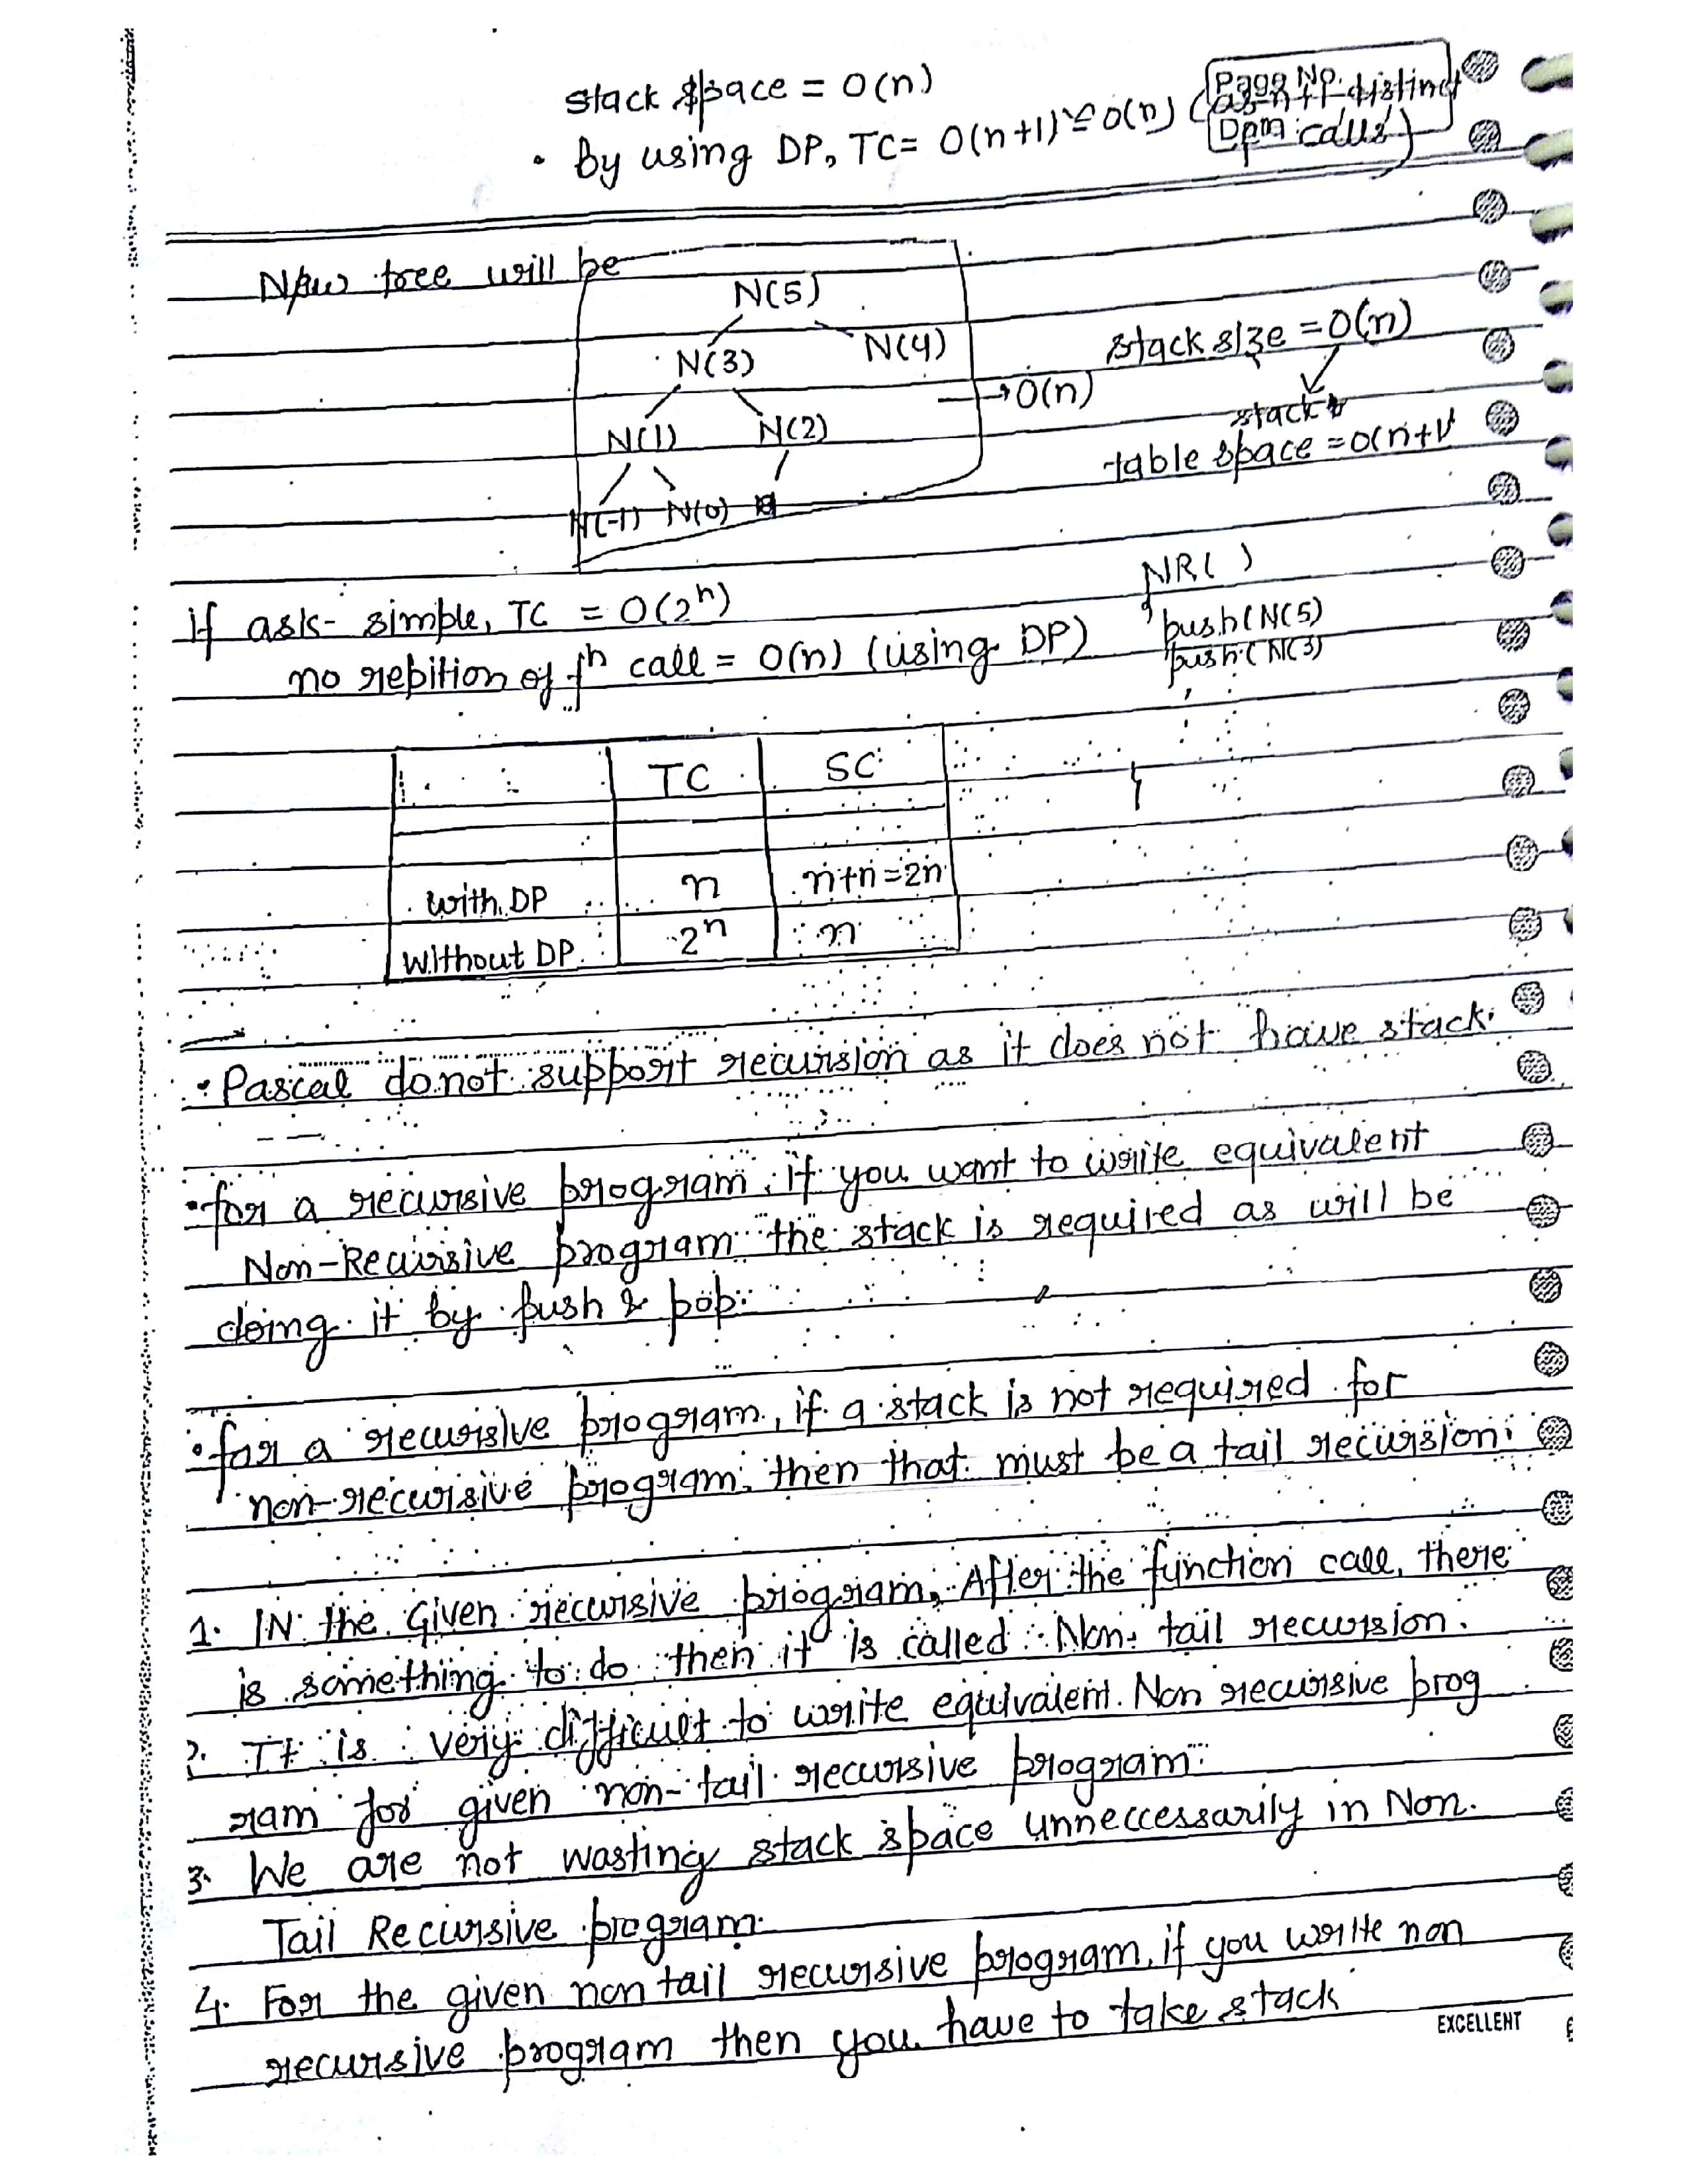 stack space = O(n)
Page No.
• By using DP, TC = O(n+1) ≅ O(n) (as n+1 distinct
calls)
New tree will be
N(5)
N(3) N(4)
stack size = O(n)
→ O(n)
stack
N(1) N(2)
table space = O(n+1)
N(-1) N(0)
NR( )
If ask- simple, TC = O(2ⁿ)
push(N(5)
no repition of fⁿ call = O(n) (using DP)
push(N(3)
TC SC
with DP n n+n=2n
without DP 2ⁿ n
• Pascal do not support recursion as it does not have stack.
• for a recursive program, if you want to write equivalent
Non-Recursive program the stack is required as will be
doing it by push & pop.
• for a recursive program, if a stack is not required for
non-recursive program, then that must be a tail recursion.
1. IN the Given recursive program, After the function call, there
is something to do then it is called Non-tail recursion.
2. It is very difficult to write equivalent Non recursive prog
ram for given non-tail recursive program.
3. We are not wasting stack space unneccessarily in Non-
Tail Recursive program.
4. For the given non tail recursive program, if you write non
recursive program then you have to take stack
EXCELLENT